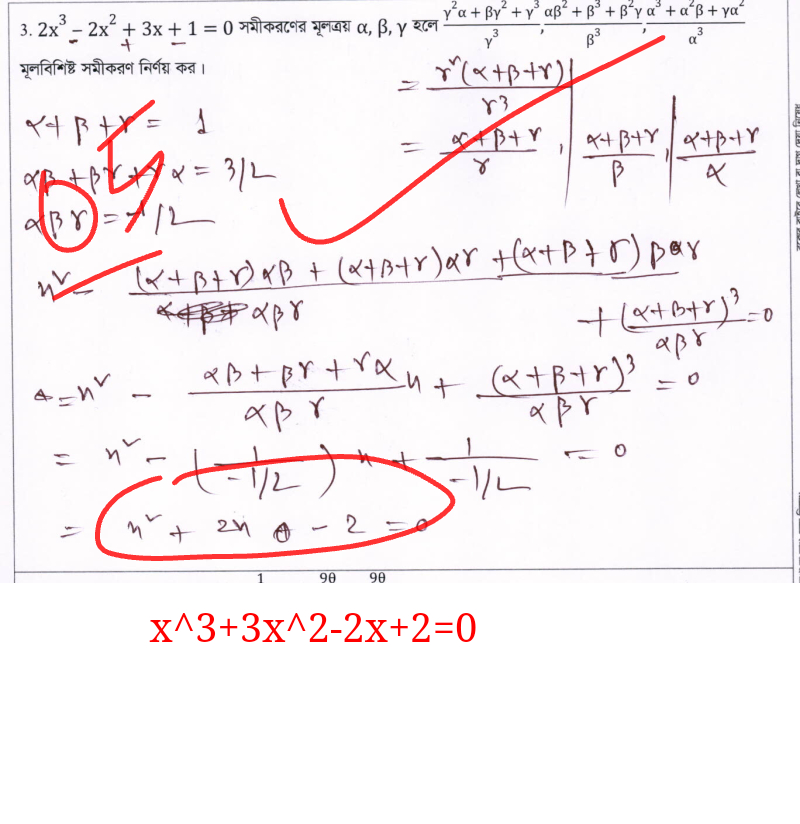 3. 2x³ – 2x² + 3x + 1 = 0 সমীকরণের মূলত্রয় α, β, γ হলে (γ²α + βγ² + γ³)/γ³, (αβ² + β³ + β²γ)/β³, (α³ + α²β + γα²)/α³
মূলবিশিষ্ট সমীকরণ নির্ণয় কর।
= γ²(α+β+γ)/γ³
α+β+γ = 1
= (α+β+γ)/γ, (α+β+γ)/β, (α+β+γ)/α
αβ+βγ+γα = 3/2
αβγ = -1/2
x² - ((α+β+γ)αβ + (α+β+γ)αγ + (α+β+γ)βγ)/αβγ
+ (α+β+γ)³/αβγ = 0
= x² - (αβ+βγ+γα)/αβγ x + (α+β+γ)³/αβγ = 0
= x² - (1/(-1/2)) x + 1/(-1/2) = 0
= x² + 2x - 2 = 0
1 90 90
x^3+3x^2-2x+2=0